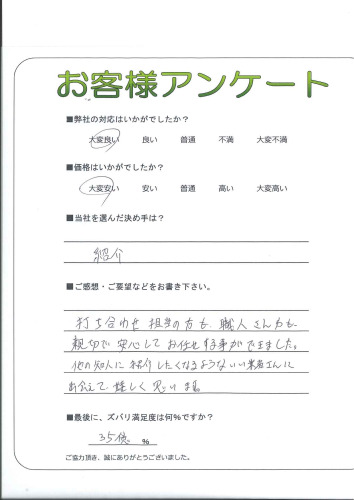 お客様アンケート
■弊社の対応はいかがでしたか？
大変良い 良い 普通 不満 大変不満
■価格はいかがでしたか？
大変安い 安い 普通 高い 大変高い
■当社を選んだ決め手は？
紹介
■ご感想・ご要望などをお書き下さい。
打ち合わせ担当の方も、職人さん方も、
親切で安心してお任せする事ができました。
他の知人に紹介したくなるようないい業者さんに
出会えて、嬉しく思います。
■最後に、ズバリ満足度は何%ですか？
35億 %
ご協力頂き、誠にありがとうございました。